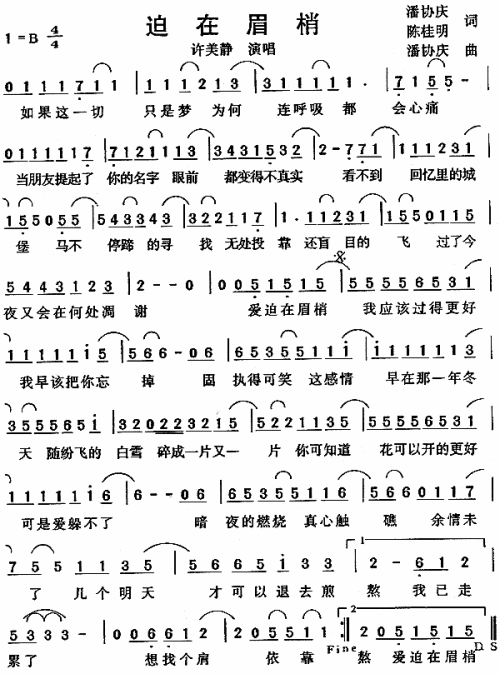 迫在眉梢
1=B 4/4
潘协庆 词
陈桂明
潘协庆 曲
许美静 演唱
0 1 1 1 7 1 1 | 1 1 1 2 1 3 | 3 1 1 1 1 1 1 . | 7 1 5 5 - |
如果这一切 只是梦为何 连呼吸都 会心痛
0 1 1 1 1 1 7 | 7 1 2 1 1 1 3 | 3 4 3 1 5 3 2 | 2 - 7 7 1 | 1 1 1 2 3 1 |
当朋友提起了 你的名字 眼前 都变得不真实 看不到 回忆里的城
1 5 5 0 5 5 | 5 4 3 3 4 3 | 3 2 2 1 1 7 | 1 . 1 1 2 3 1 | 1 5 5 0 1 1 5 |
堡 马不 停蹄的寻 找 无处投 靠 还盲目的 飞 过了今
5 4 4 3 1 2 3 | 2 - - 0 | 0 0 5 1 5 1 5 | 5 5 5 5 6 5 3 1 |
夜又会在何处凋 谢 爱迫在眉梢 我应该过得更好
1 1 1 1 1 1 5 | 5 6 6 - 0 6 | 6 5 3 5 5 1 1 1 | 1 1 1 1 1 1 3 |
我早该把你忘 掉 固 执得可笑 这感情 早在那一年冬
3 5 5 5 6 5 i | 3 2 0 2 2 3 2 1 5 | 5 2 2 1 1 3 5 | 5 5 5 5 6 5 3 1 |
天 随纷飞的 白雪 碎成一片又一 片 你可知道 花可以开的更好
1 1 1 1 1 1 6 | 6 - - 0 6 | 6 5 3 5 5 1 1 6 | 5 6 6 0 1 1 7 |
可是爱躲不了 暗 夜的燃烧 真心触 礁 余情未
7 5 5 1 1 3 5 | 5 6 6 5 i 3 3 | 2 - 6 1 2 |
了 几个明天 才可以退去煎 熬 我已走
5 3 3 3 - | 0 0 6 6 1 2 | 2 0 5 5 1 1 :| 2 0 5 1 5 1 5 |
累了 想找个肩 依靠 Fine 熬 爱迫在眉梢 D S